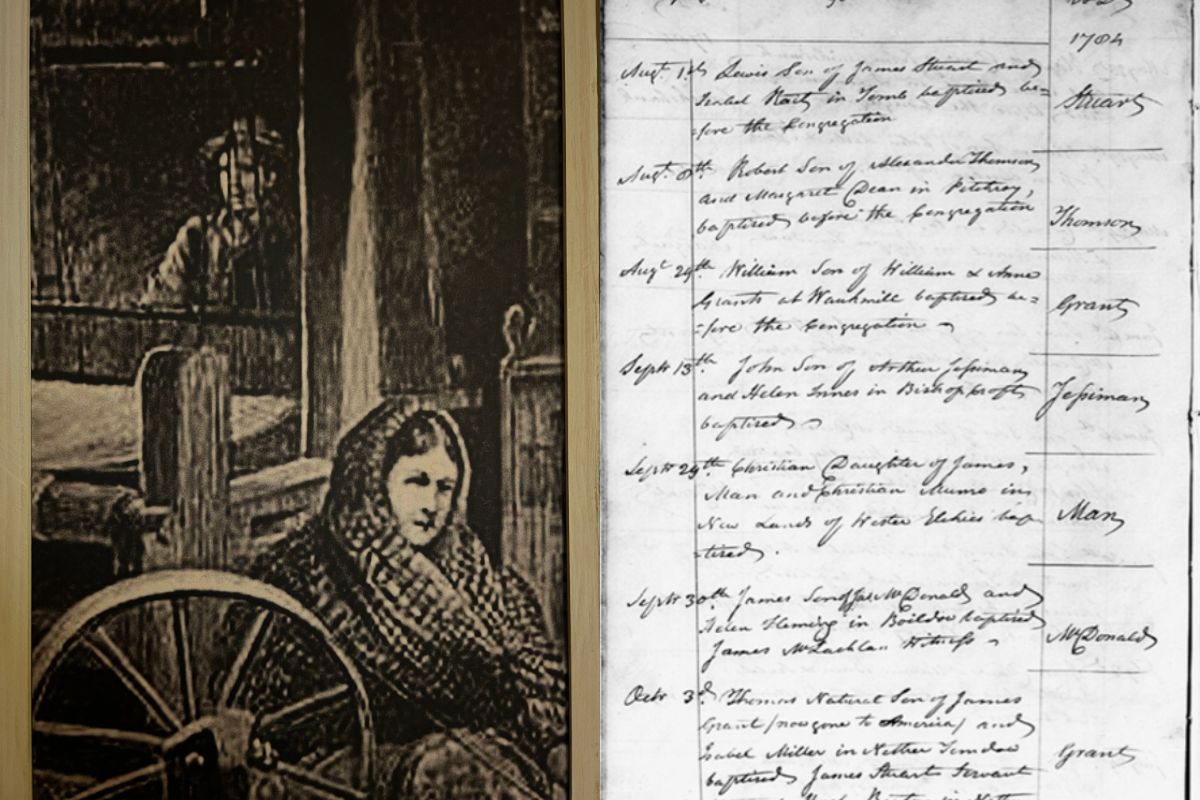 1784
Augt. 1st Lewis Son of James Stuart and
Isobel in Tomb baptised be=
=fore the Congregation
Stuart
Augt. 8th Robert Son of Alexander Thomson
and Margaret Dean in Pitchroy,
baptised before the Congregation
Thomson
Augt 29th William Son of William & Anne
Grants at Waukmill baptised be=
=fore the Congregation
Grant
Septr 13th John Son of Arthur Jessiman
and Helen Innes in Bishop Croft
baptised
Jessiman
Septr 29th Christian Daughter of James,
Man and Christian Munro in
New Lands of Wester Elchies bap
=tised.
Man
Septr 30th James Son of Jas McDonald and
Helen Fleming in Boildow baptised
James McLachlan Witness
McDonald
Octr 3d Thomas Natural Son of James
Grant (now gone to America) and
Isobel Miller in Nether Tomdow
baptised James Stuart Servant
Grant